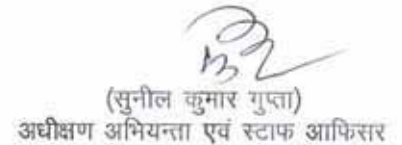 (सुनील कुमार गुप्ता)
अधीक्षण अभियन्ता एवं स्टाफ आफिसर